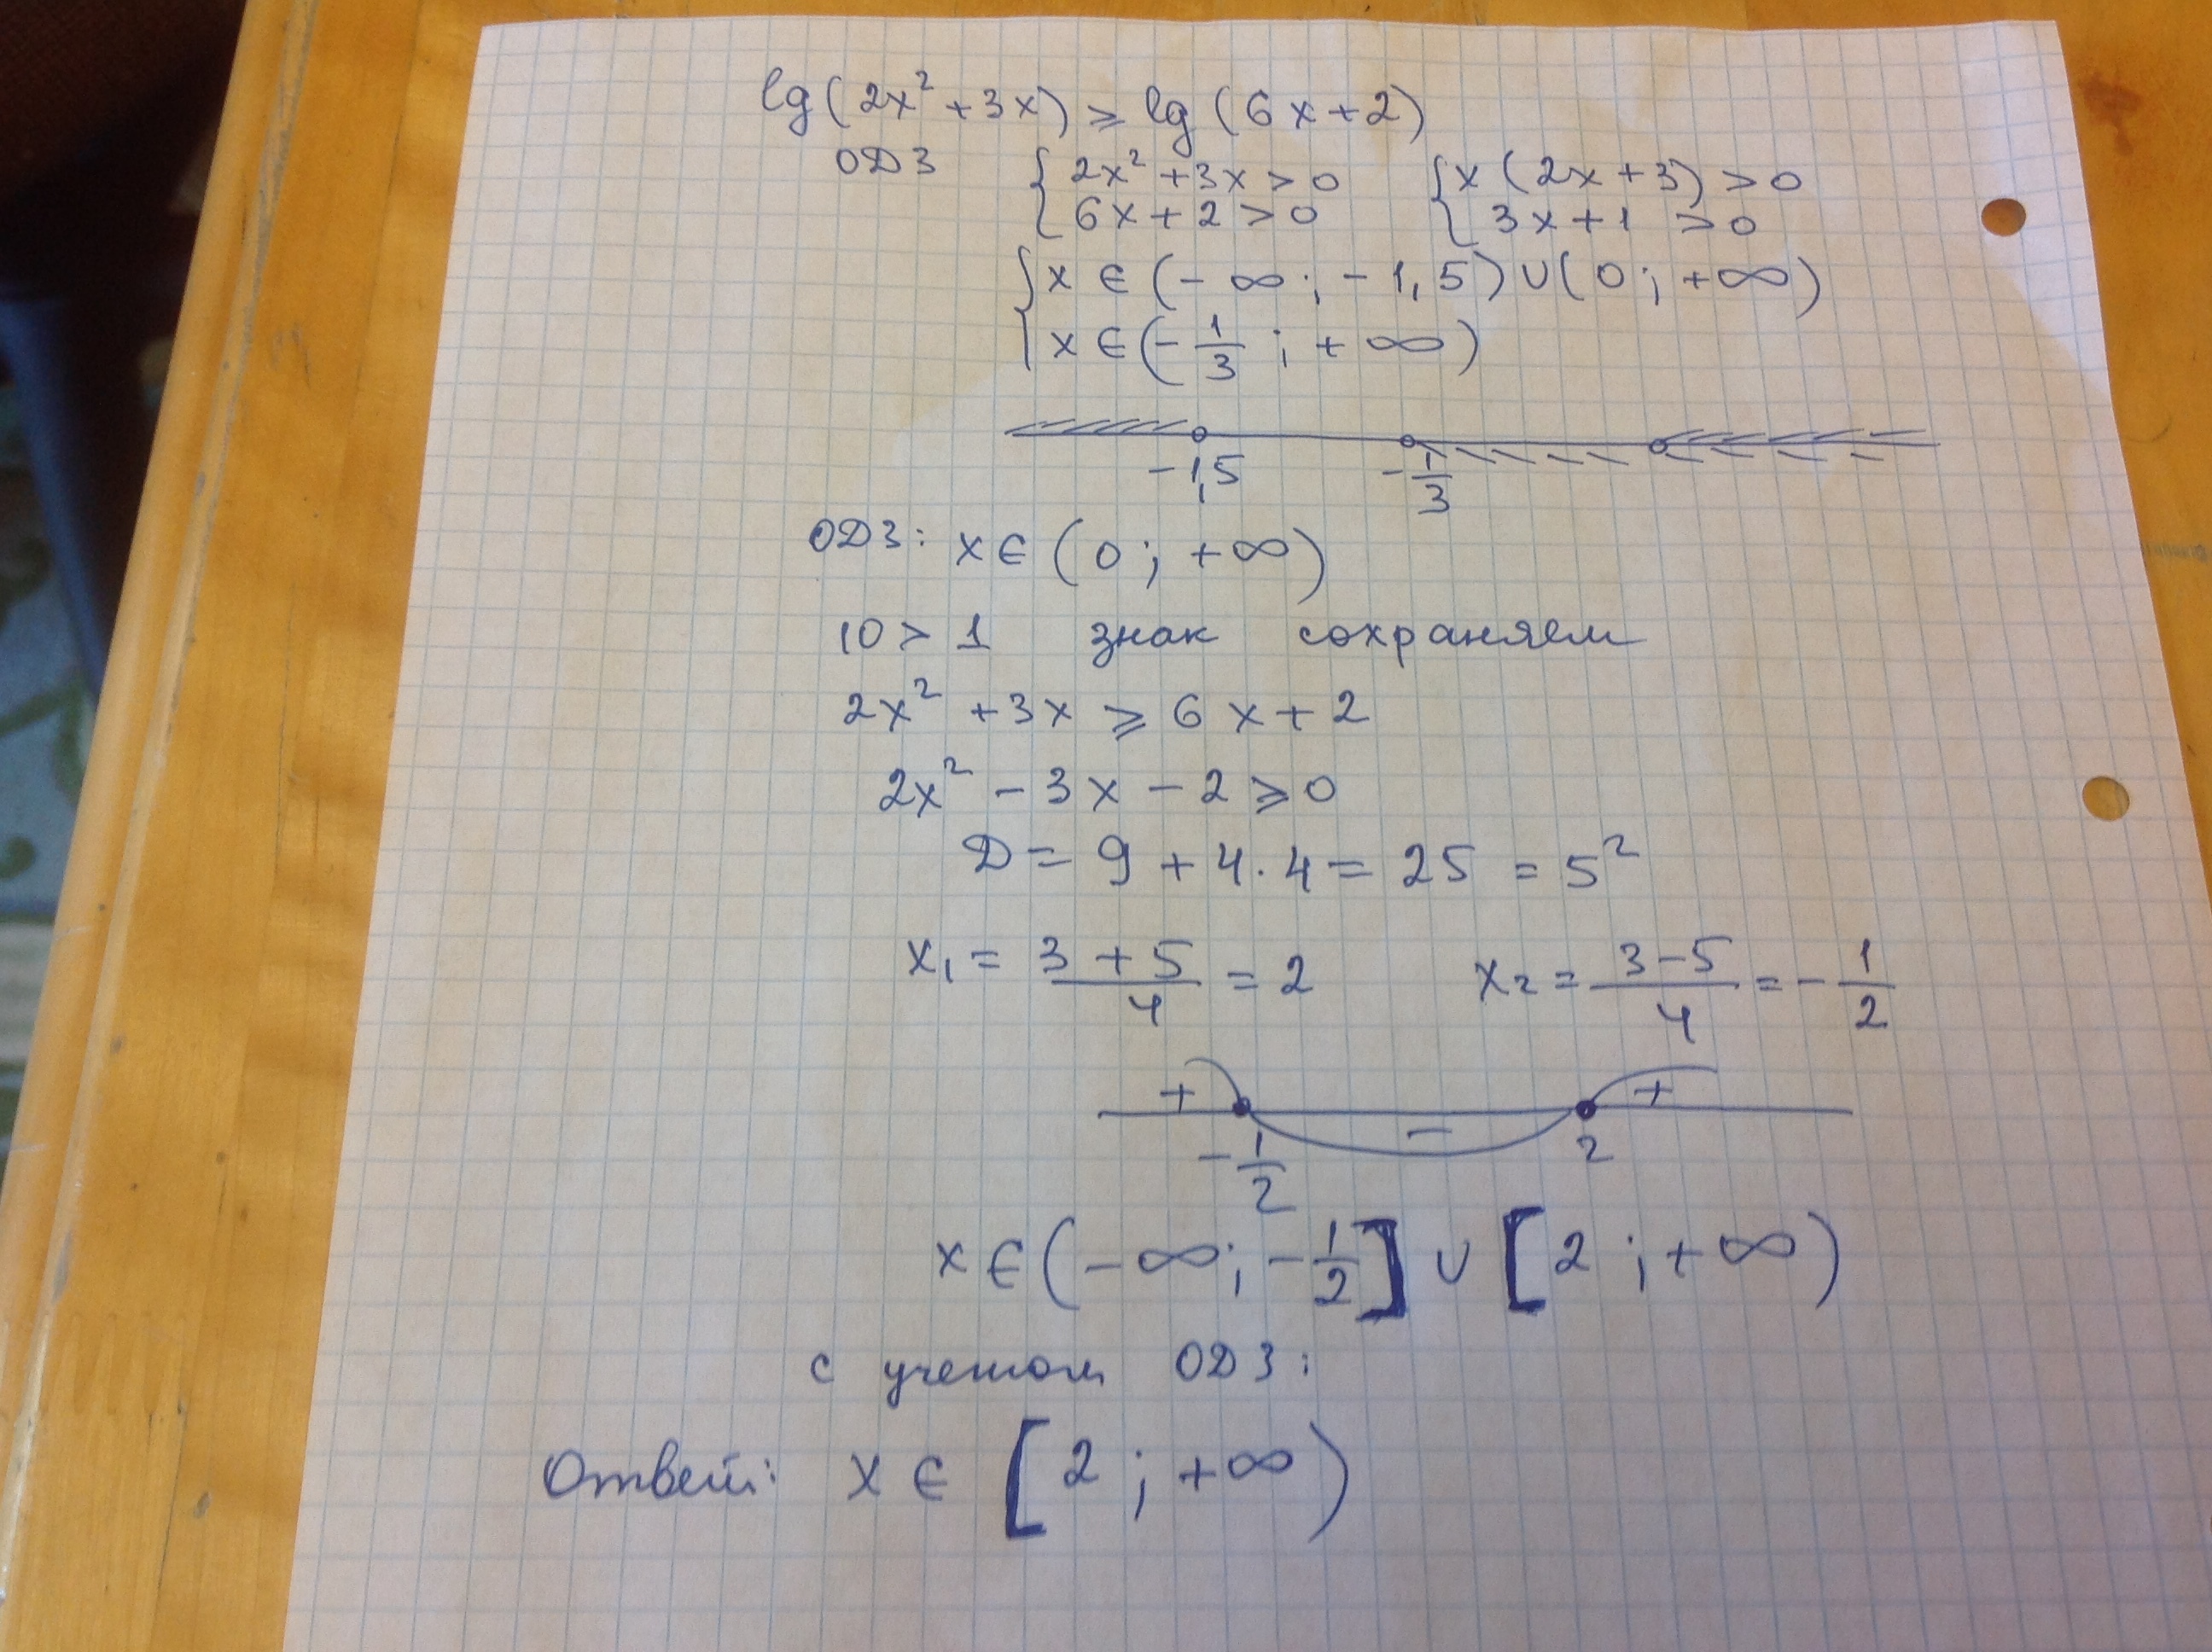 lg(2x² + 3x) ⩾ lg(6x+2)
ОДЗ { 2x² + 3x > 0 { x(2x+3) > 0
{ 6x + 2 > 0 { 3x+1 > 0
{ x ∈ (-∞; -1,5) ∪ (0; +∞)
{ x ∈ (-1/3; +∞)
-1,5 -1/3
ОДЗ: x ∈ (0; +∞)
10 > 1 знак сохраняем
2x² + 3x ⩾ 6x + 2
2x² - 3x - 2 ⩾ 0
D = 9 + 4·4 = 25 = 5²
x₁ = (3+5)/4 = 2 x₂ = (3-5)/4 = -1/2
+ - +
-1/2 2
x ∈ (-∞; -1/2] ∪ [2; +∞)
с учетом ОДЗ:
Ответ: x ∈ [2; +∞)